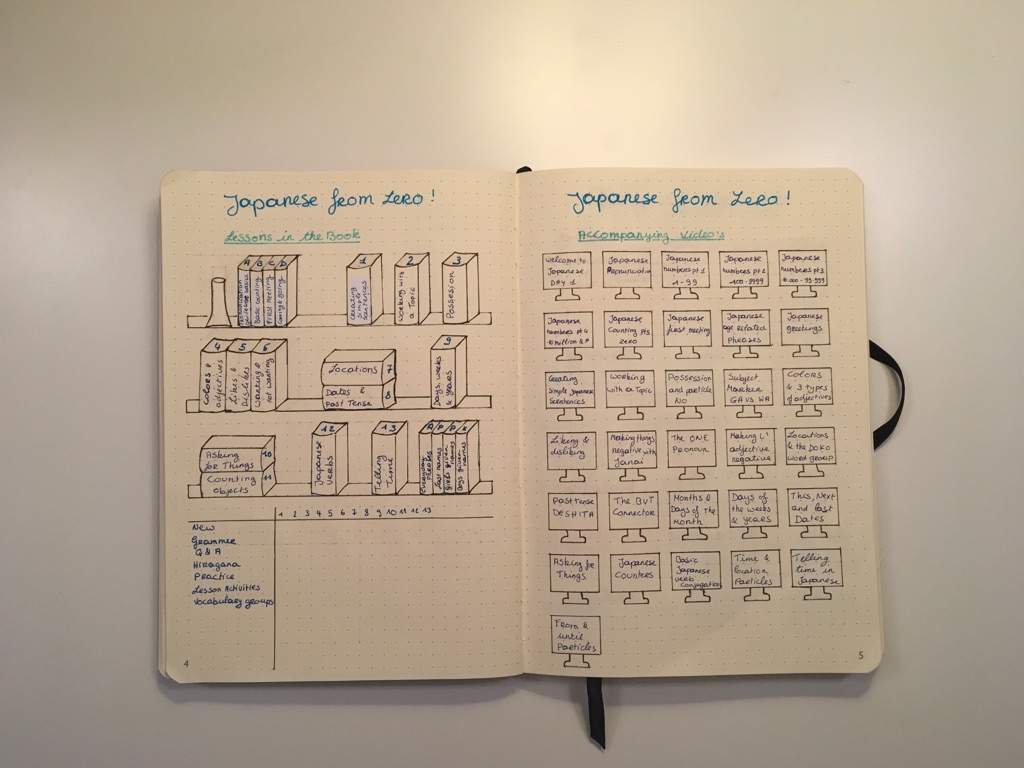 Japanese from Zero!
Lessons in the Book
A B C D
Basic counting
First meeting
1
Creating
simple
sentences
2
Working with
a Topic
3
Possession
4
Colors &
adjectives
5
Likes &
Dislikes
6
Wanting &
not wanting
Locations 7
Dates &
Past Tense 8
9
Days, weeks
& years
Asking
for Things 10
Counting
objects 11
12
Japanese
verbs
13
Telling
Time
Last names
1 2 3 4 5 6 7 8 9 10 11 12 13
New
Grammer
Q & A
Hiragana
Practice
Lesson Activities
Vocabulary groups
4
Japanese from Zero!
Accompanying Video's
Welcome to
Japanese
DAY 1
Japanese
Pronunciation
Japanese
numbers pt 1
1-99
Japanese
numbers pt 1
100-9999
Japanese
numbers pt 3
Japanese
numbers pt 4
Japanese
Counting pt5
zero
Japanese
first meeting
Japanese
age related
Phrases
Japanese
greetings
Creating
Simple Japanese
Working
with a Topic
Possession
and particle
NO
Subject
Marker
GA vs WA
Colors
& 3 types
of adjectives
Liking &
disliking
Making things
negative with
Janai
The ONE
Pronoun
Making i'
adjective
negative
Locations
& the DOKO
word group
Past Tense
DESHITA
The BUT
Connector
Months &
Days of the
Month
Days of
the weeks
& years
This, Next
and Last
Dates
Asking for
Things
Japanese
Counters
Basic
Japanese
verb
Conjugation
Time &
location
Particles
Telling
time in
Japanese
From &
until
Particles
5